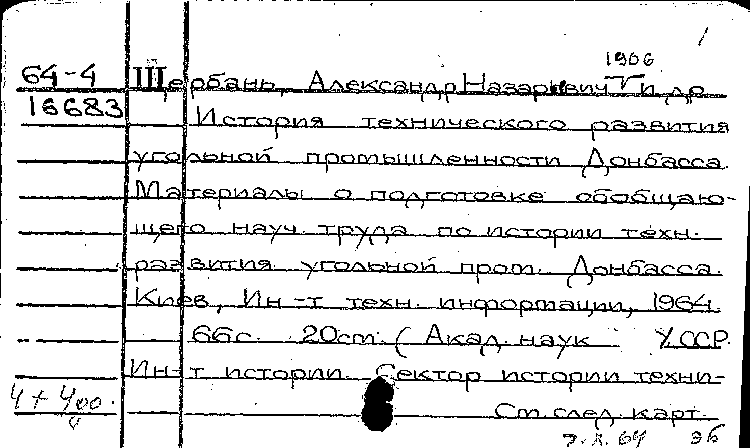 1
1906
64-4 Щербань, Александр Назарьевич и др.
16683 История технического развития
угольной промышленности Донбасса.
Материалы о подготовке обобщаю-
щего науч. труда по истории техн.
развития угольной пром. Донбасса.
Киев, Ин-т техн. информации, 1964.
66с. 20см. (Акад. наук УССР.
Ин-т истории. Сектор истории техни-
См. след. карт.